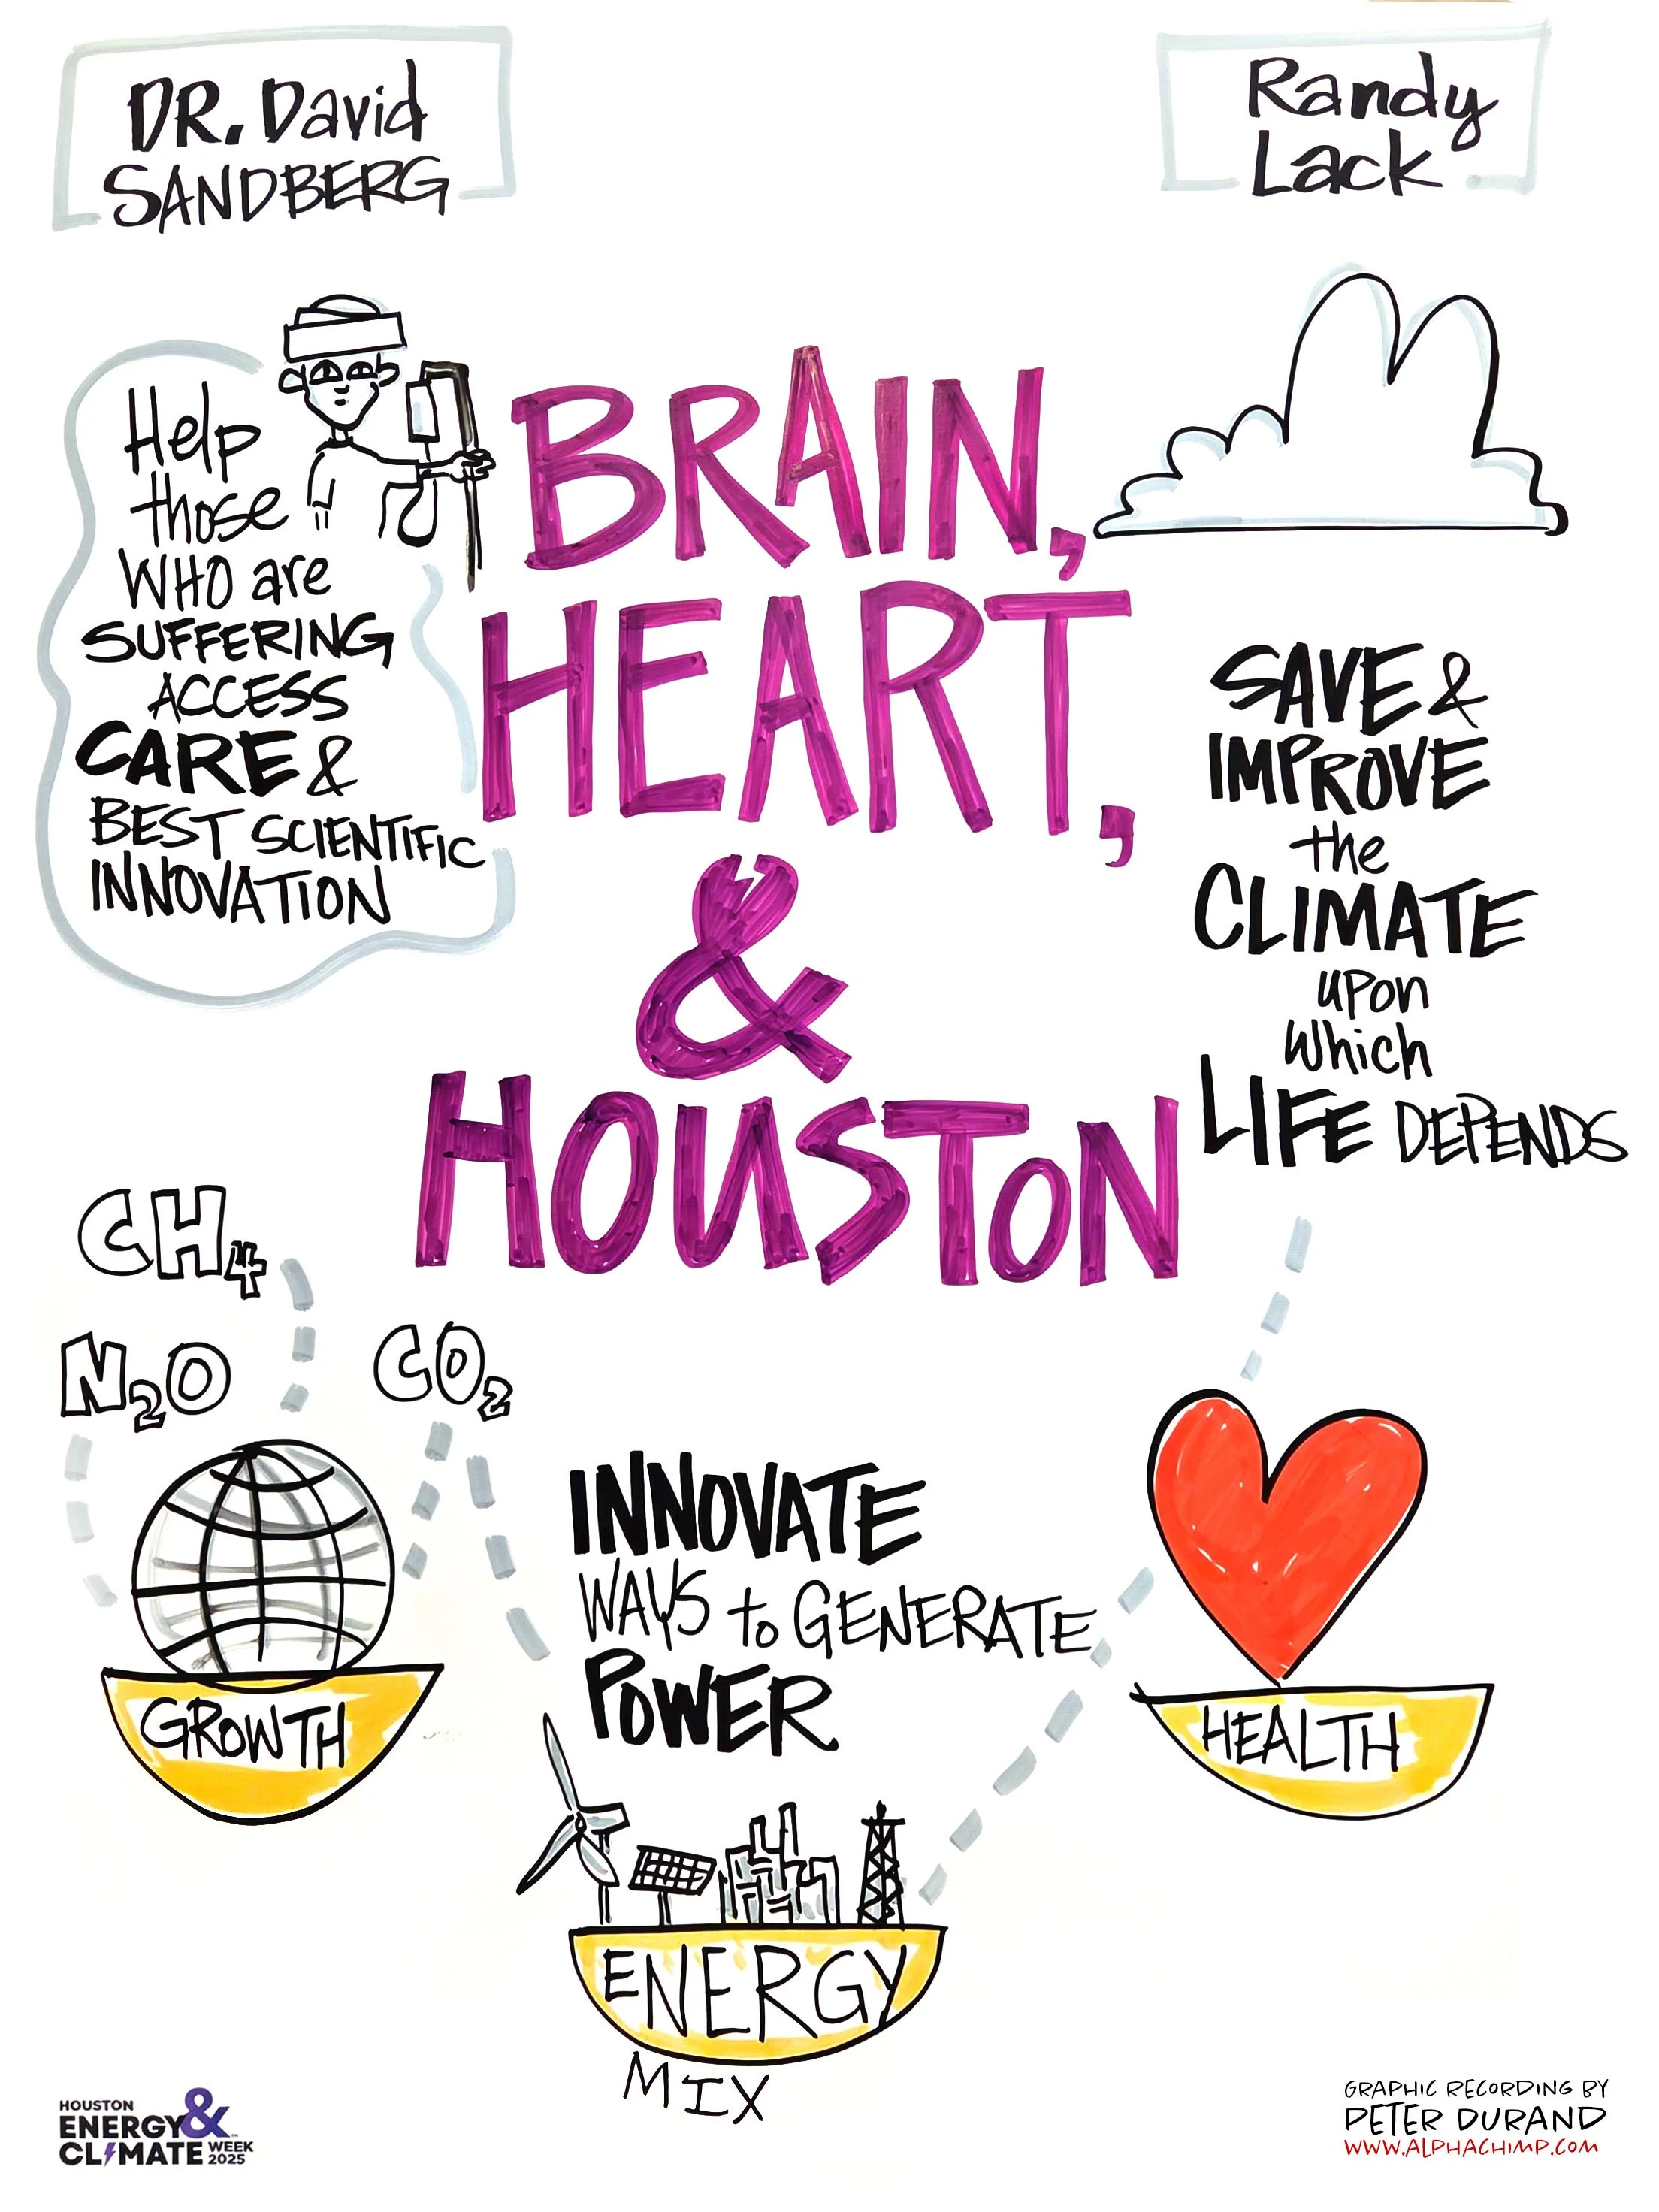 DR. David
SANDBERG
Randy
Lack
Help
those
WHO are
SUFFERING
ACCESS
CARE &
BEST SCIENTIFIC
INNOVATION
BRAIN,
HEART,
&
HOUSTON
SAVE &
IMPROVE
the
CLIMATE
upon
Which
LIFE DEPENDS
CH4
N2O
CO2
GROWTH
INNOVATE
WAYS to GENERATE
POWER
HEALTH
ENERGY
MIX
HOUSTON
ENERGY&
CLIMATE WEEK
2025
GRAPHIC RECORDING BY
PETER DURAND
WWW.ALPHACHIMP.COM